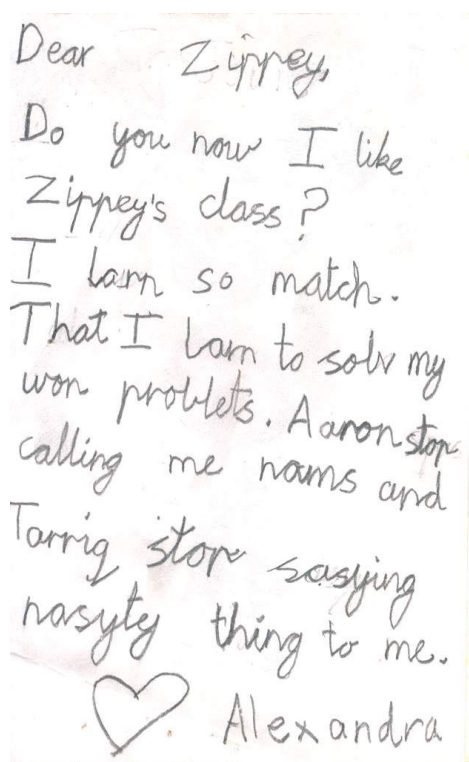 Dear Zippey,
Do you now I like
Zippey's class?
I larn so match.
That I larn to solv my
won problets. Aaron stop
calling me nams and
Tarriq stop sasying
nasyty thing to me.
Alexandra